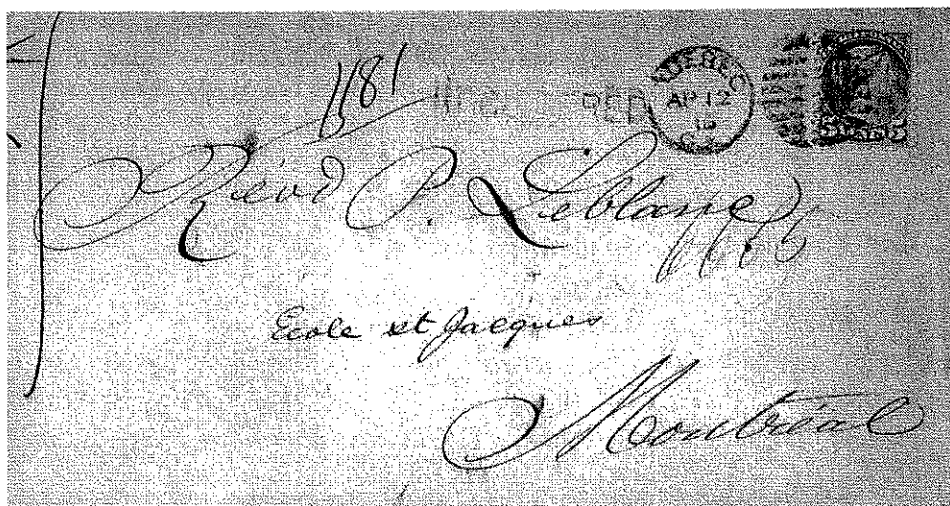 1181
QUEBEC
AP 12
Revd P. Leblanc
Ecole st Jacques
Montréal